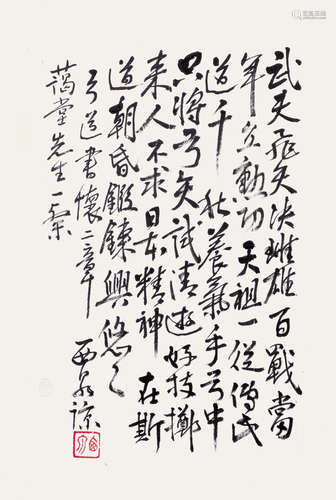 武夫飛矢決雌雄百戰當
年立勳功天祖一從傳此
道千秋養氣手弓中
只將弓矢試清遊好技擲
来人不求日本精神在斯
道朝昏鍛鍊興悠々
弓道書懷二章
藹堂先生一粲